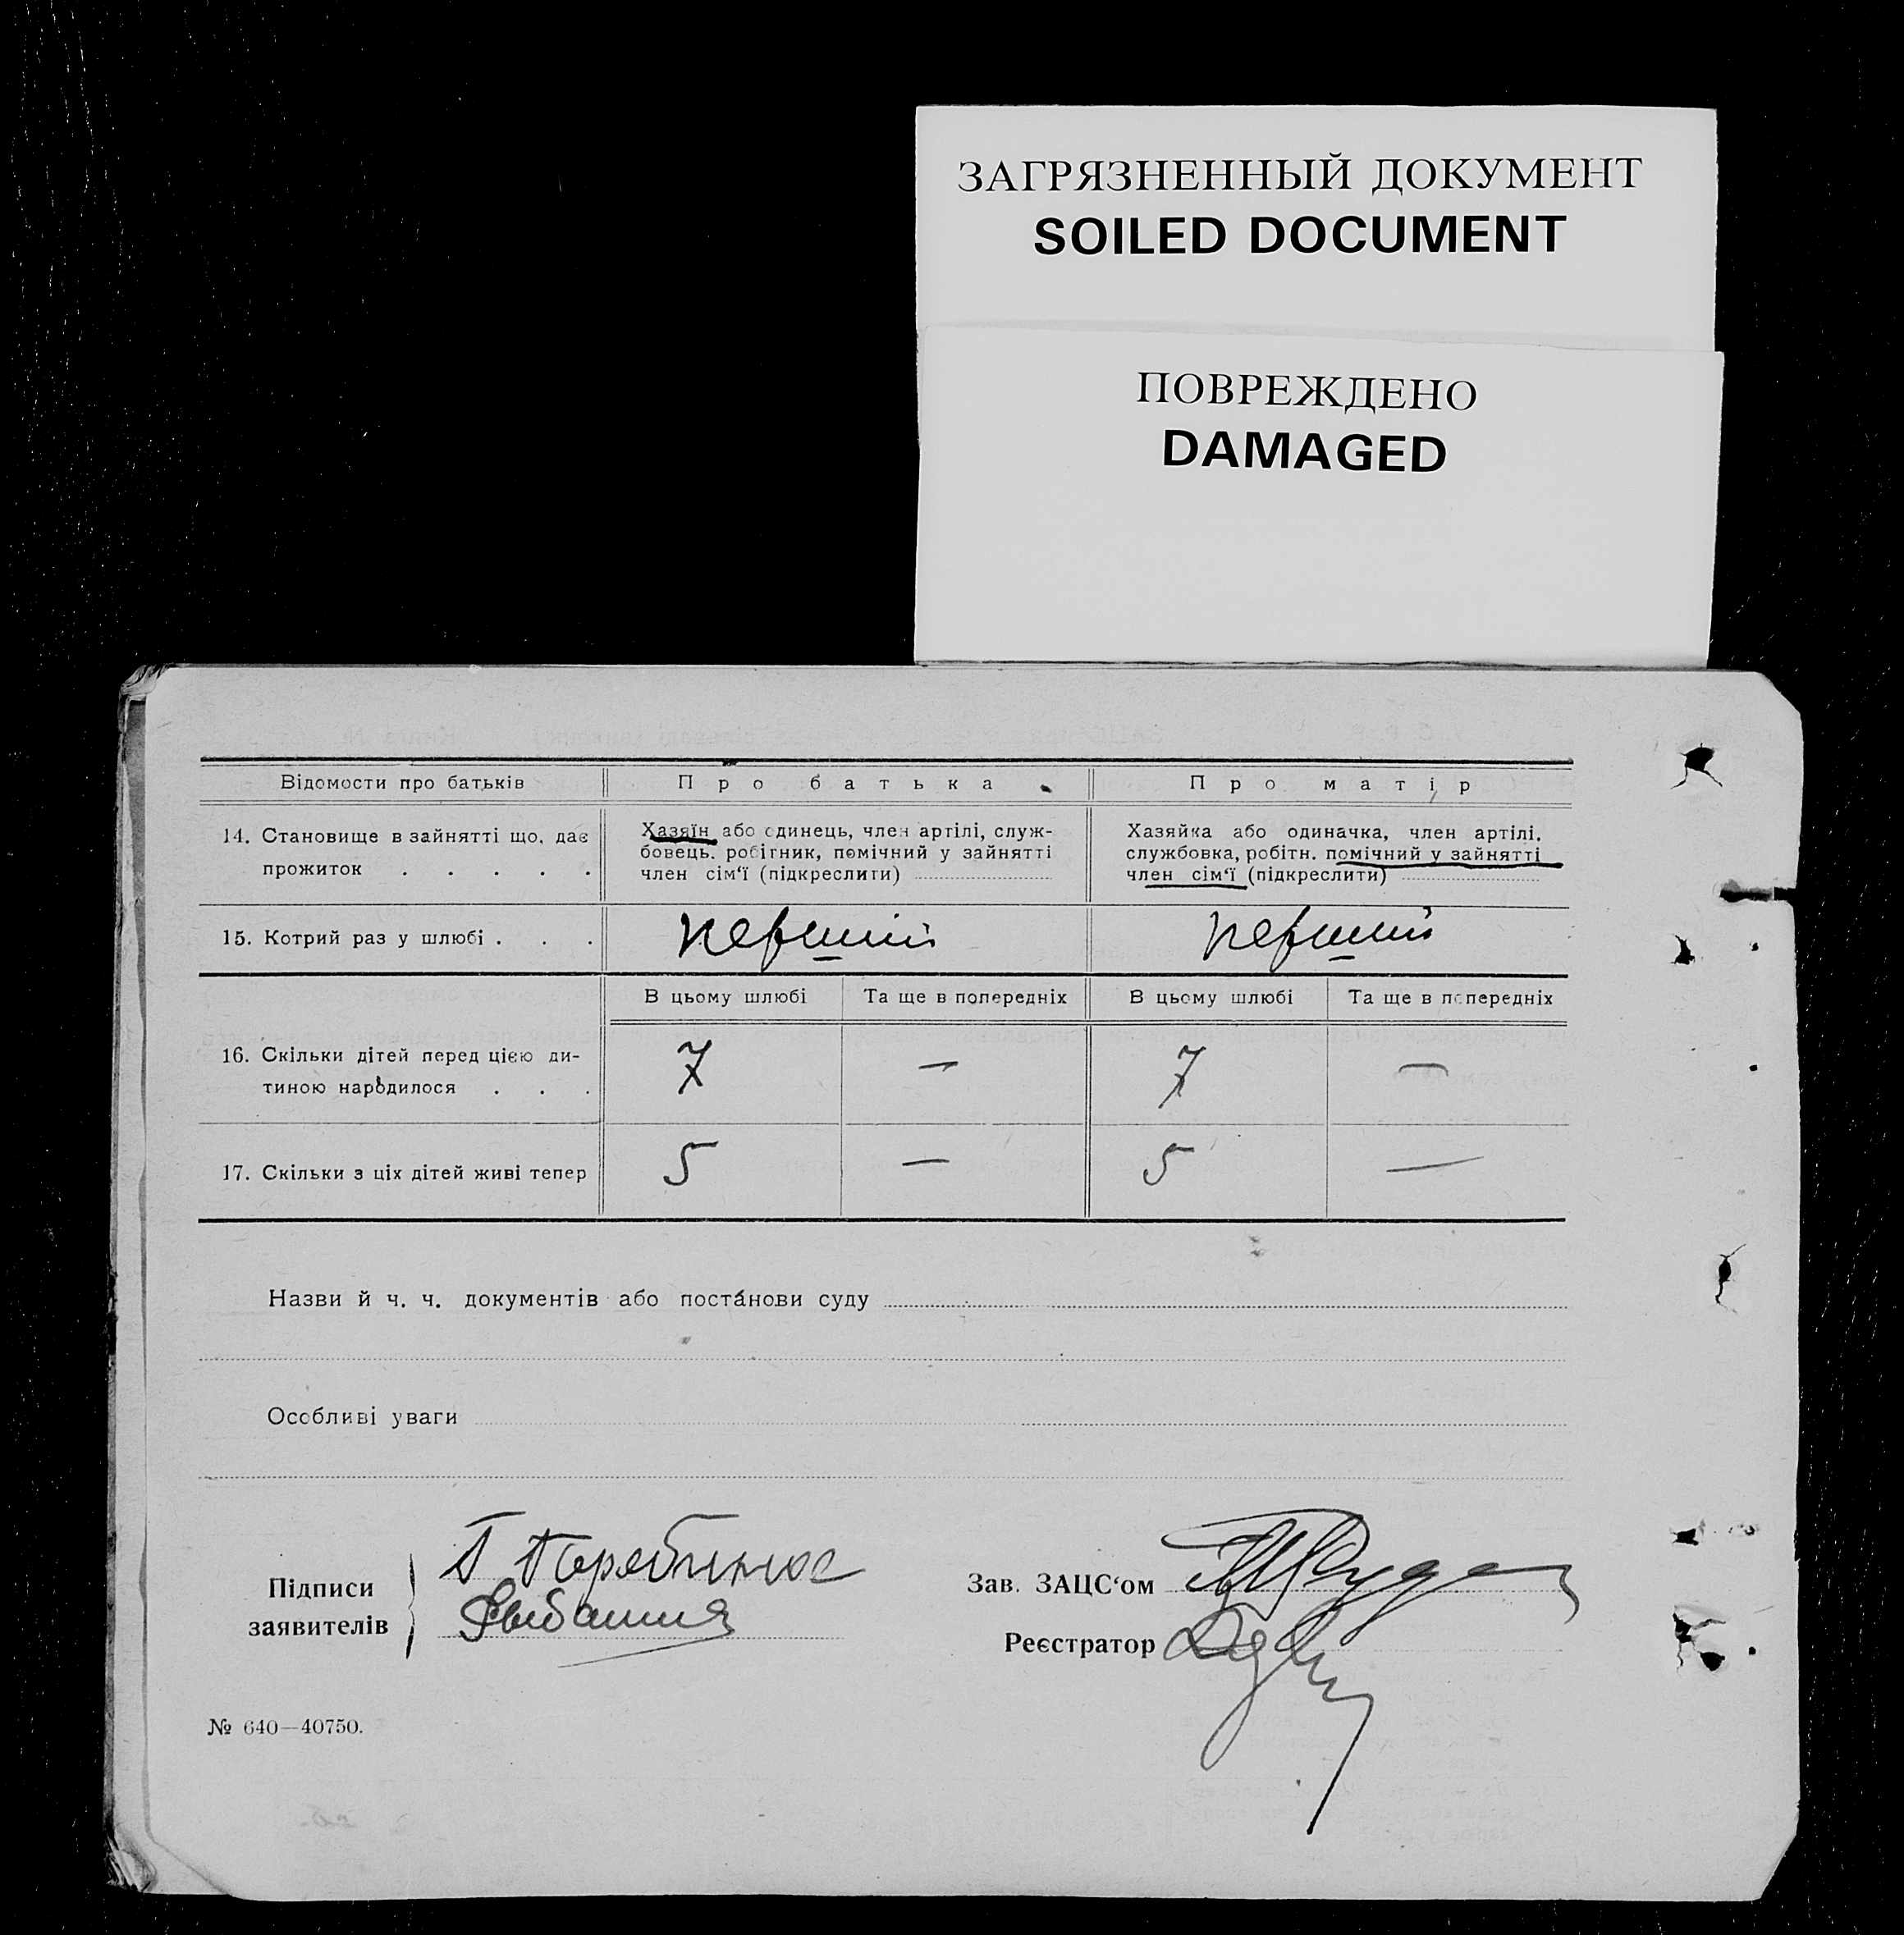 ЗАГРЯЗНЕННЫЙ ДОКУМЕНТ
SOILED DOCUMENT
ПОВРЕЖДЕНО
DAMAGED
Відомости про батьків
Про батька
Про матір
14. Становище в зайнятті що, дає
прожиток . . . . .
Хазяїн або єдинець, член артілі, служ-
бовець. робітник, помічний у зайнятті
член сім'ї (підкреслити)
Хазяйка або одиначка, член артілі.
службовка, робітн. помічний у зайнятті
член сім'ї (підкреслити)
15. Котрий раз у шлюбі . . .
перший
перший
В цьому шлюбі
Та ще в попередніх
В цьому шлюбі
Та ще в попередніх
16. Скільки дітей перед цією ди-
тиною народилося . . .
7
—
7
—
17. Скільки з ціх дітей живі тепер
5
—
5
—
Назви й ч. ч. документів або постáнови суду
Особливі уваги
Підписи
заявителів
Зав. ЗАЦС'ом
Реєстратор
№ 640—40750.